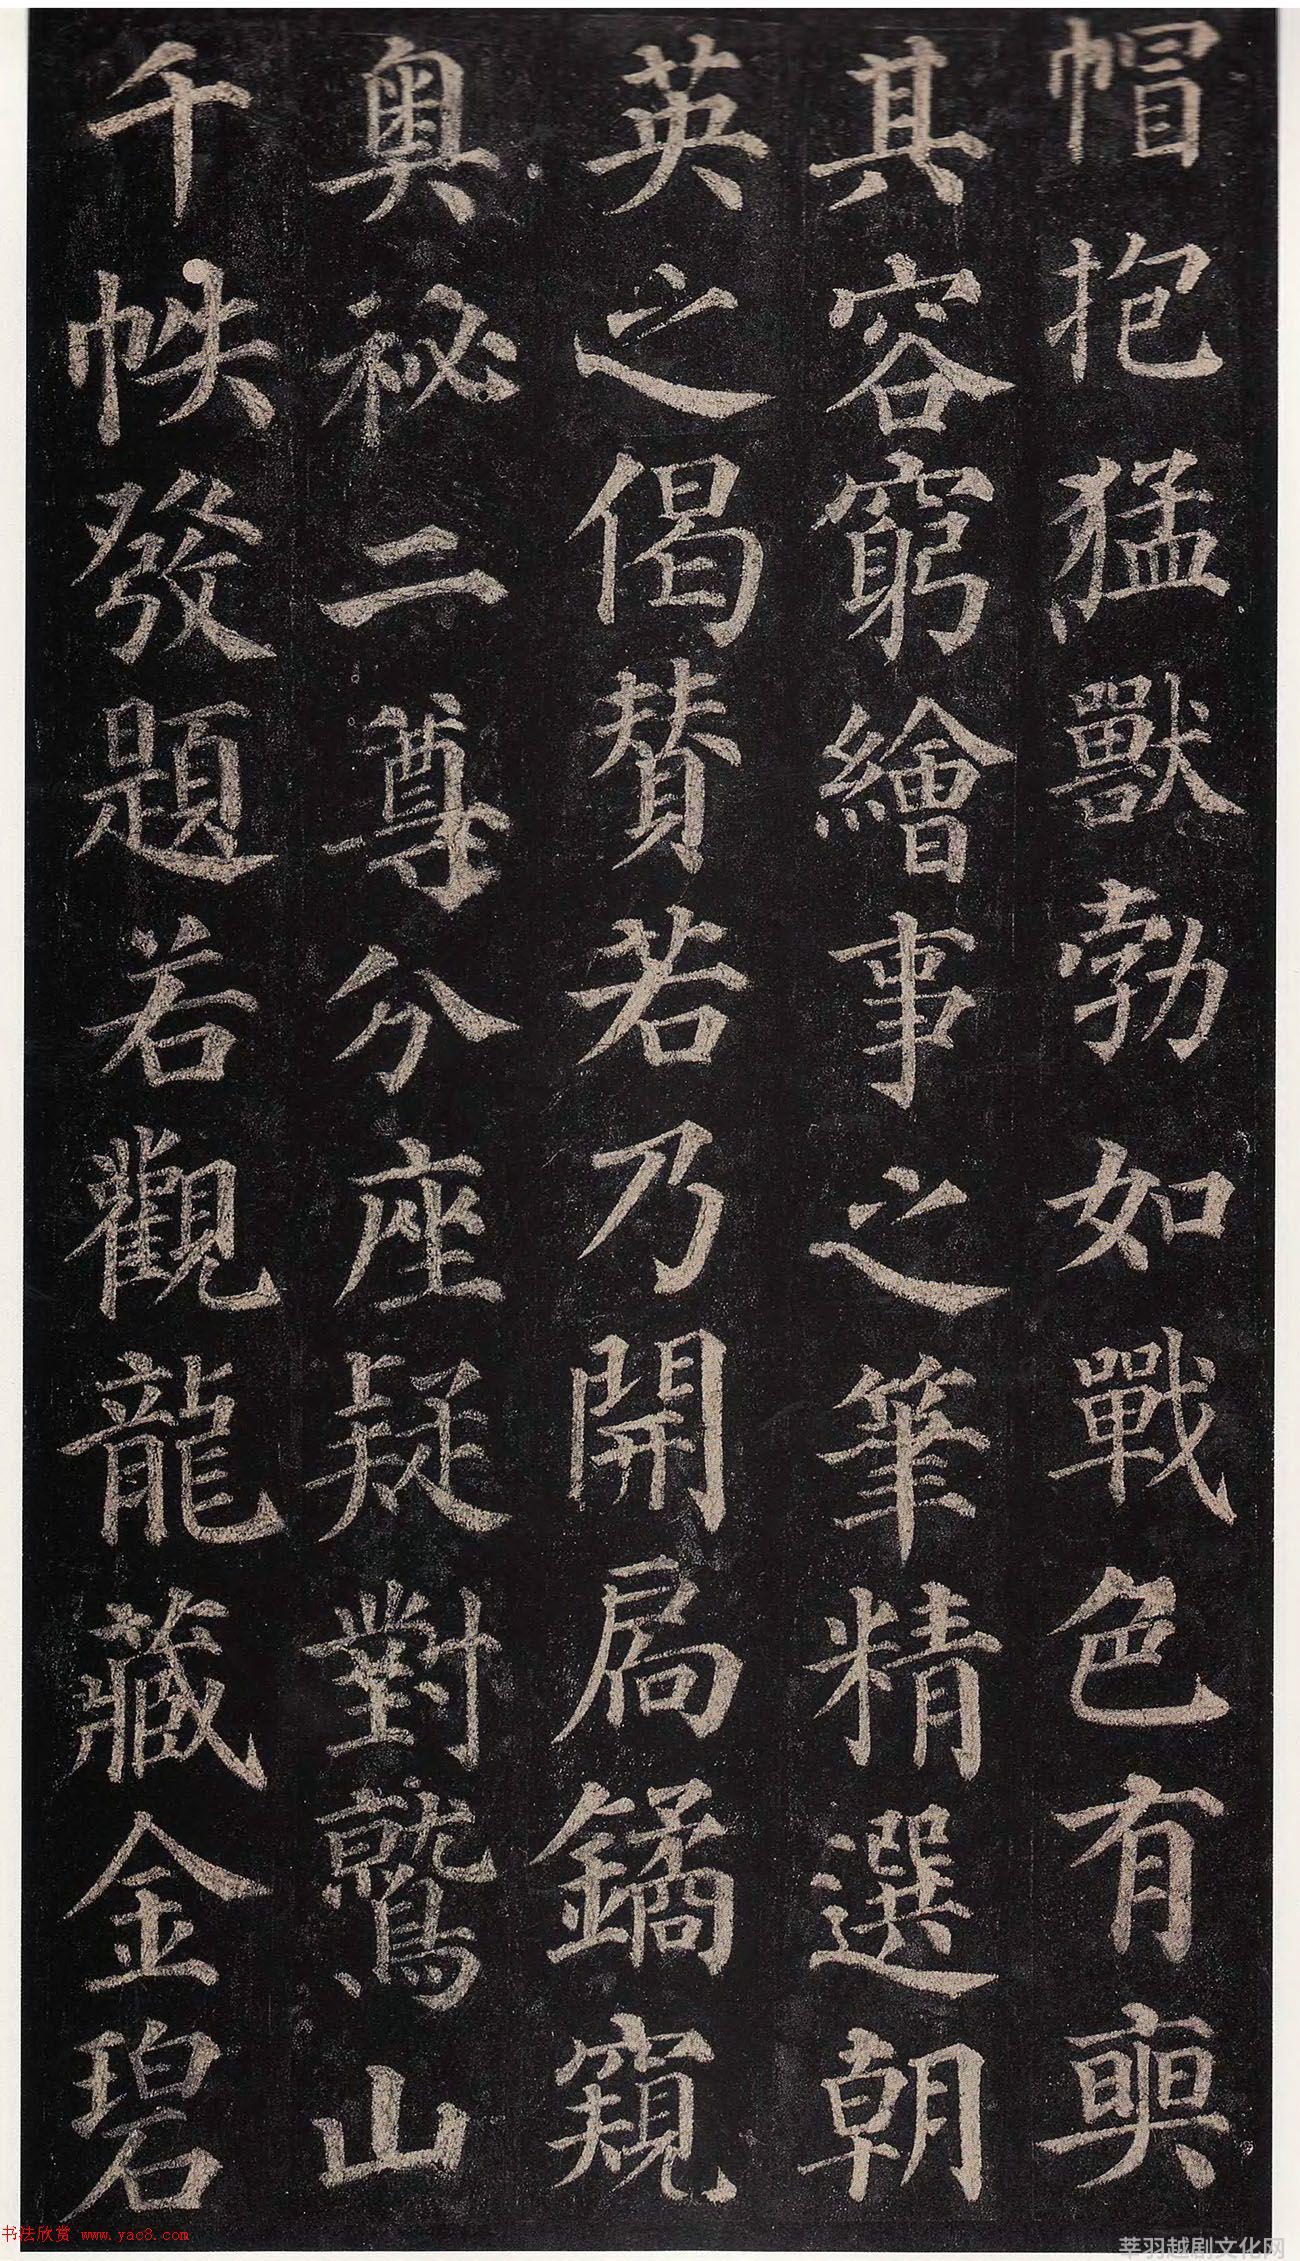 帽抱猛獸勃如戰色有奭
其容窮繪事之筆精選朝
英之偈賛若乃開扄鐍窺
奥祕二尊分座疑對鷲山
千帙發題若觀龍藏金碧
书法欣赏 www.yac8.com
莘羽越剧文化网